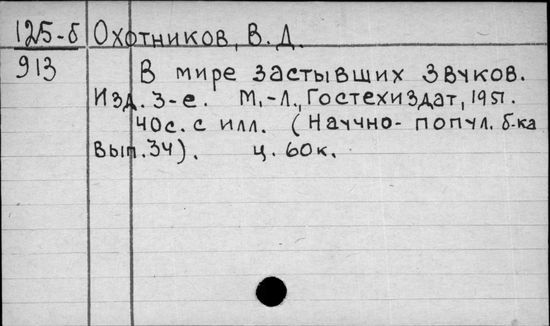 125-б Охотников, В. Д.
913 В мире застывших звуков.
Изд. 3-е. М.-Л., Гостехиздат, 1951.
40с. с илл. (Научно-попул. б-ка
Вып. 34). ц. 60к.